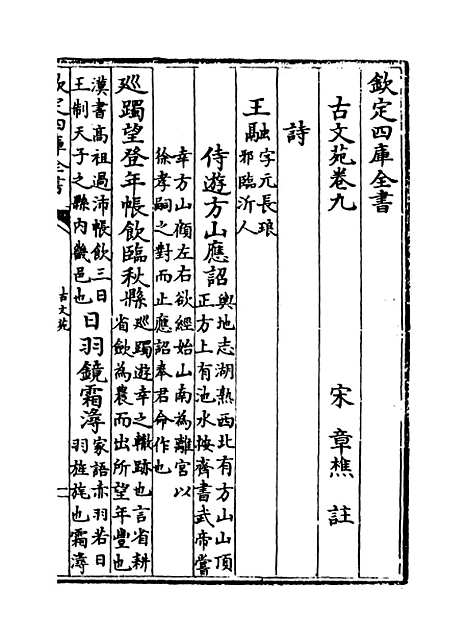 欽定四庫全書
古文苑卷九 宋 章樵 註
詩
王融
字元長琅
邪臨沂人
侍遊方山應詔
輿地志湖熟西北有方山山頂
正方上有池水按齊書武帝嘗
幸方山顧左右欲經始山南為離宮以
徐孝嗣之對而止應詔奉君命作也
廵躅望登年帳飲臨秋縣
廵躅遊幸之轍跡也言省耕
省斂為農而出所望年豐也
漢書高祖過沛帳飲三日
王制天子之縣內畿邑也
日羽鏡霜潯
家語赤羽若日
羽旌旄也霜潯
欽定四庫全書
古文苑